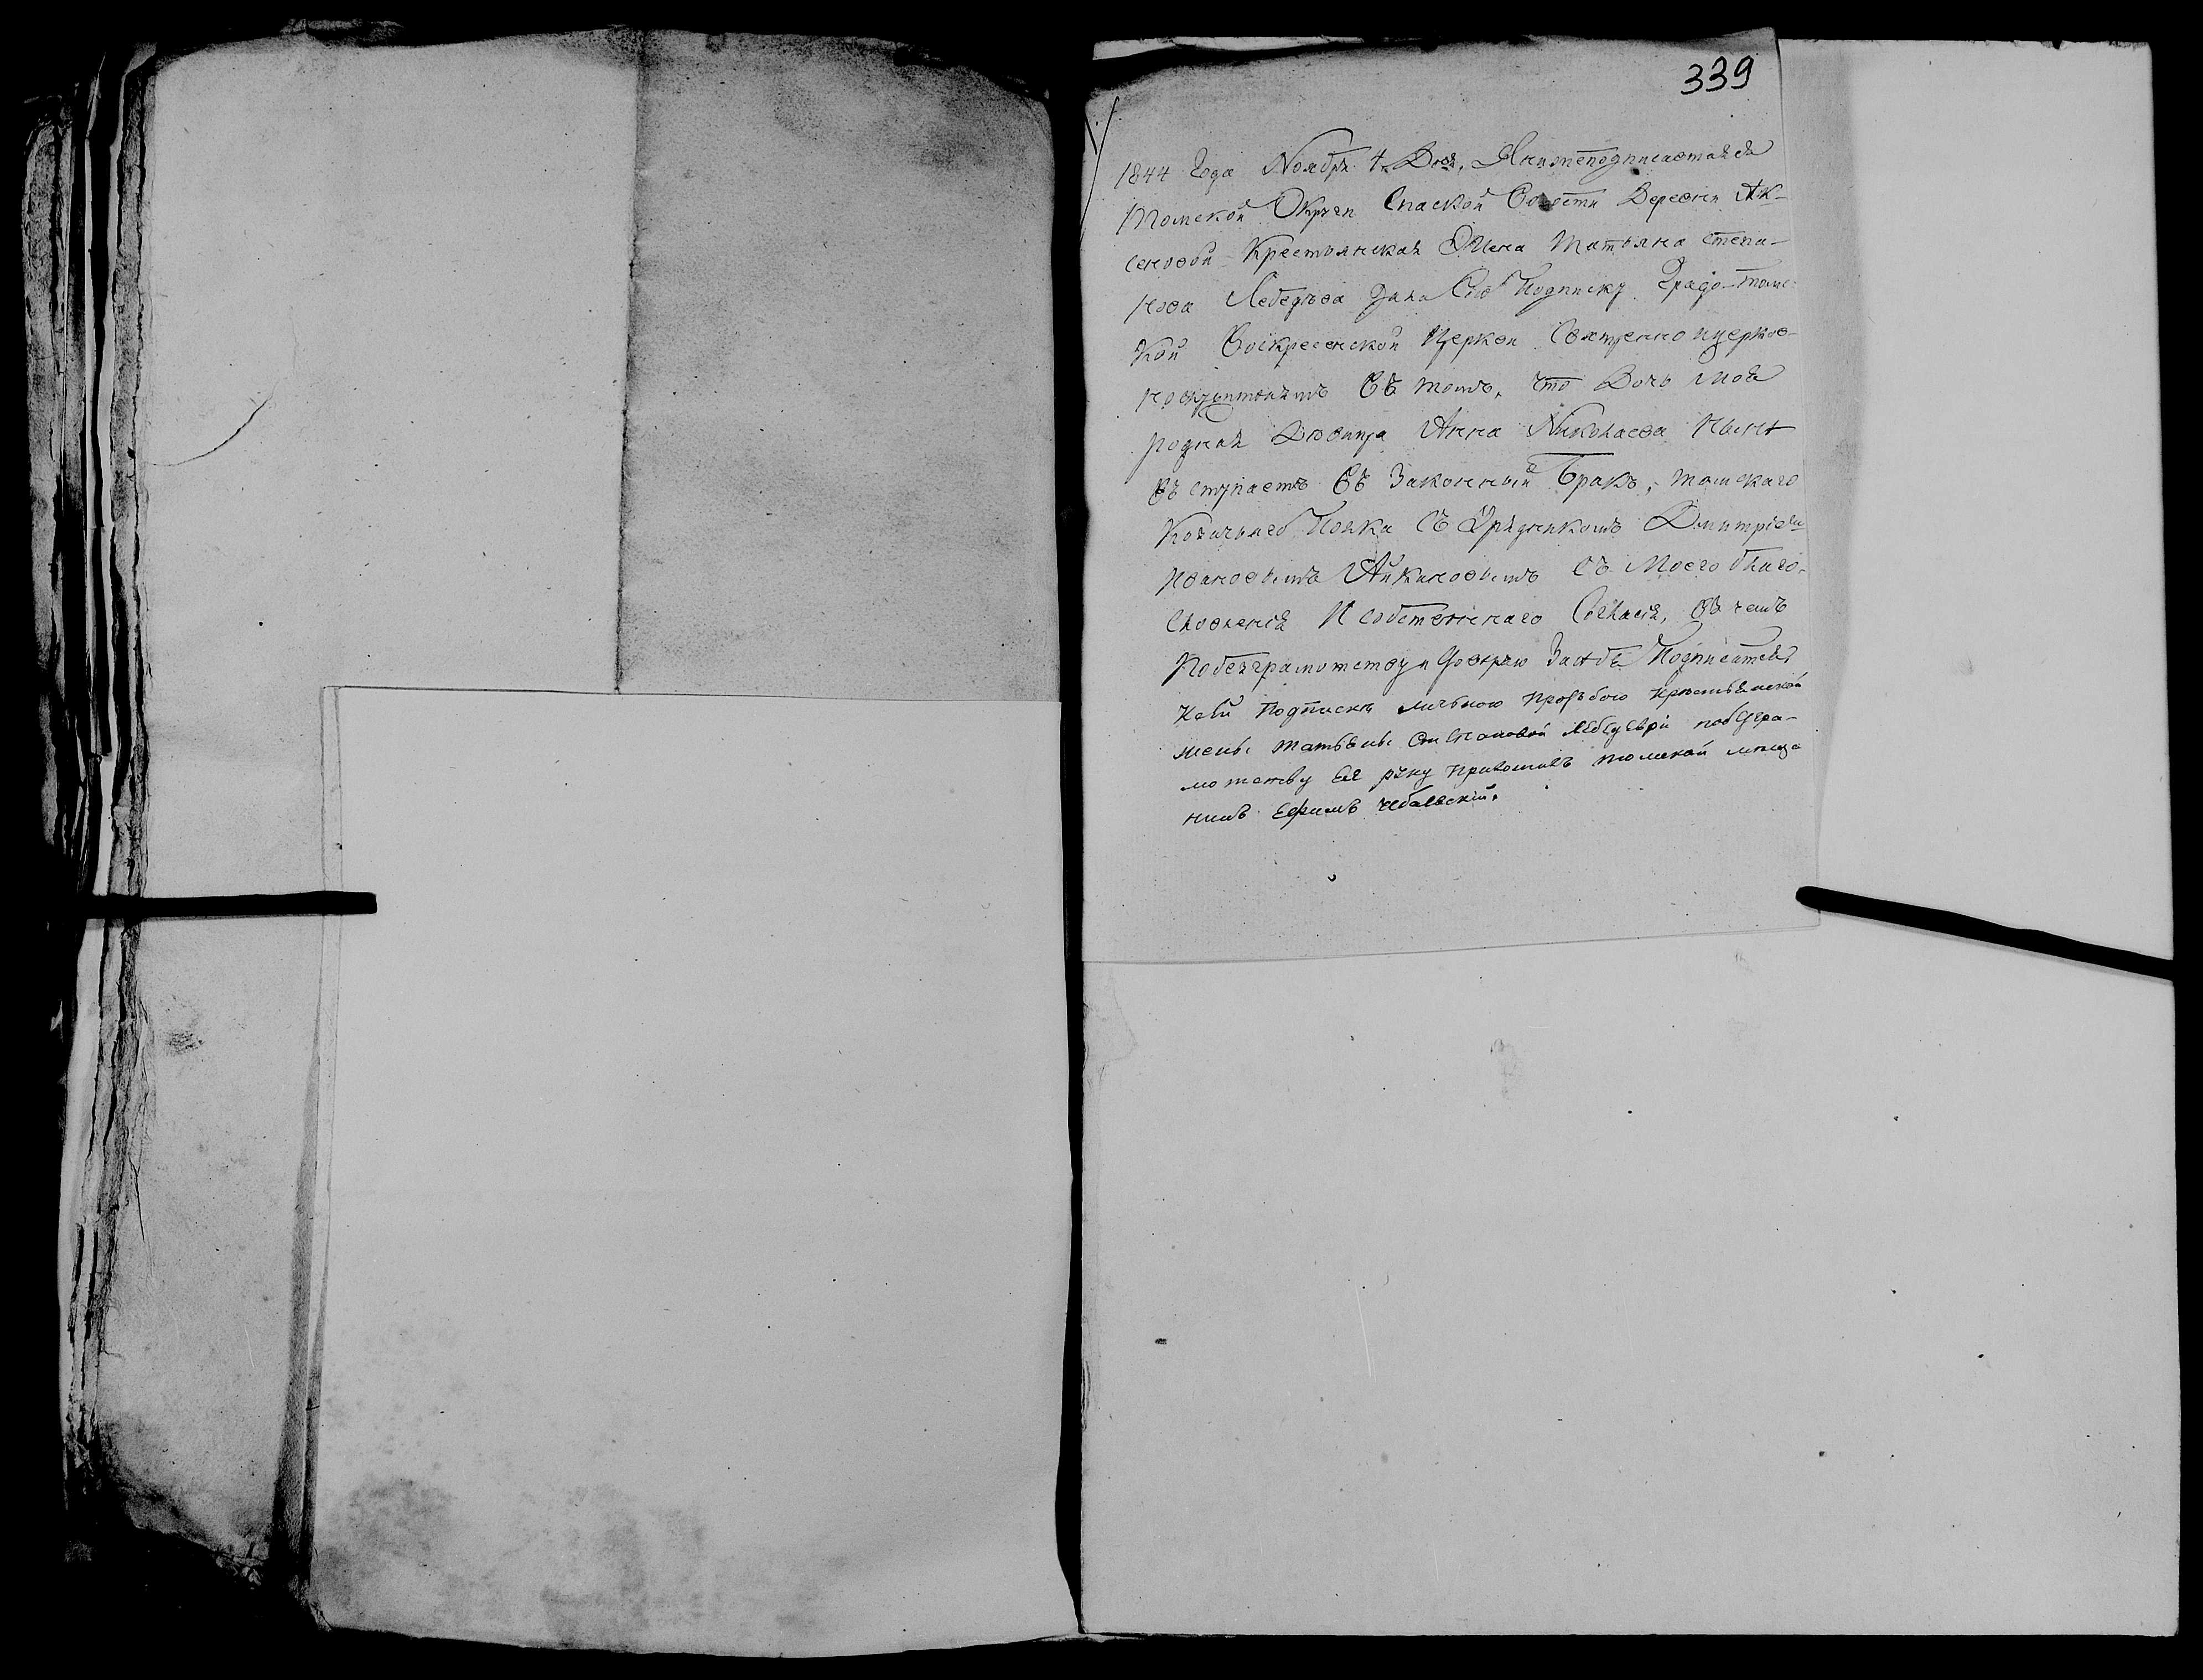 339
1844 Года Ноября 4. Дня, Я нижеподписавшаяся
Томской Округи Спаской Волости Деревни Ак-
сеновой Крестьянская Жена Татьяна Степа-
нова Лебедѣва дала Сію Подписку Градо-Томс-
кой Воскресенской Церкви Священноцерков-
нослужителямъ Въ томъ, что Дочь моя
родная Дѣвица Анна Николаева Нынѣ
въ ступаетъ Въ Законный Бракъ, томскаго
Козачьяго Полка Съ Урядникомъ Дмитріемъ
Ивановымъ Съ Моего благо-
словленія И собственнаго Согласія, Въ чемъ
Побезграмотству и довѣряю Засебѣ Подписатся
Ксей Подпискѣ личьною прозьбою крестьянской
жены татьяны Степановой Лебедевой побезгра-
мотству Ее руку приложилъ томской меща
нинъ Ефимъ